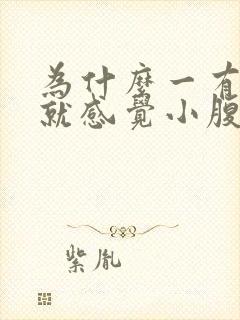 為什麼一有
就感覺小腹
紫胤